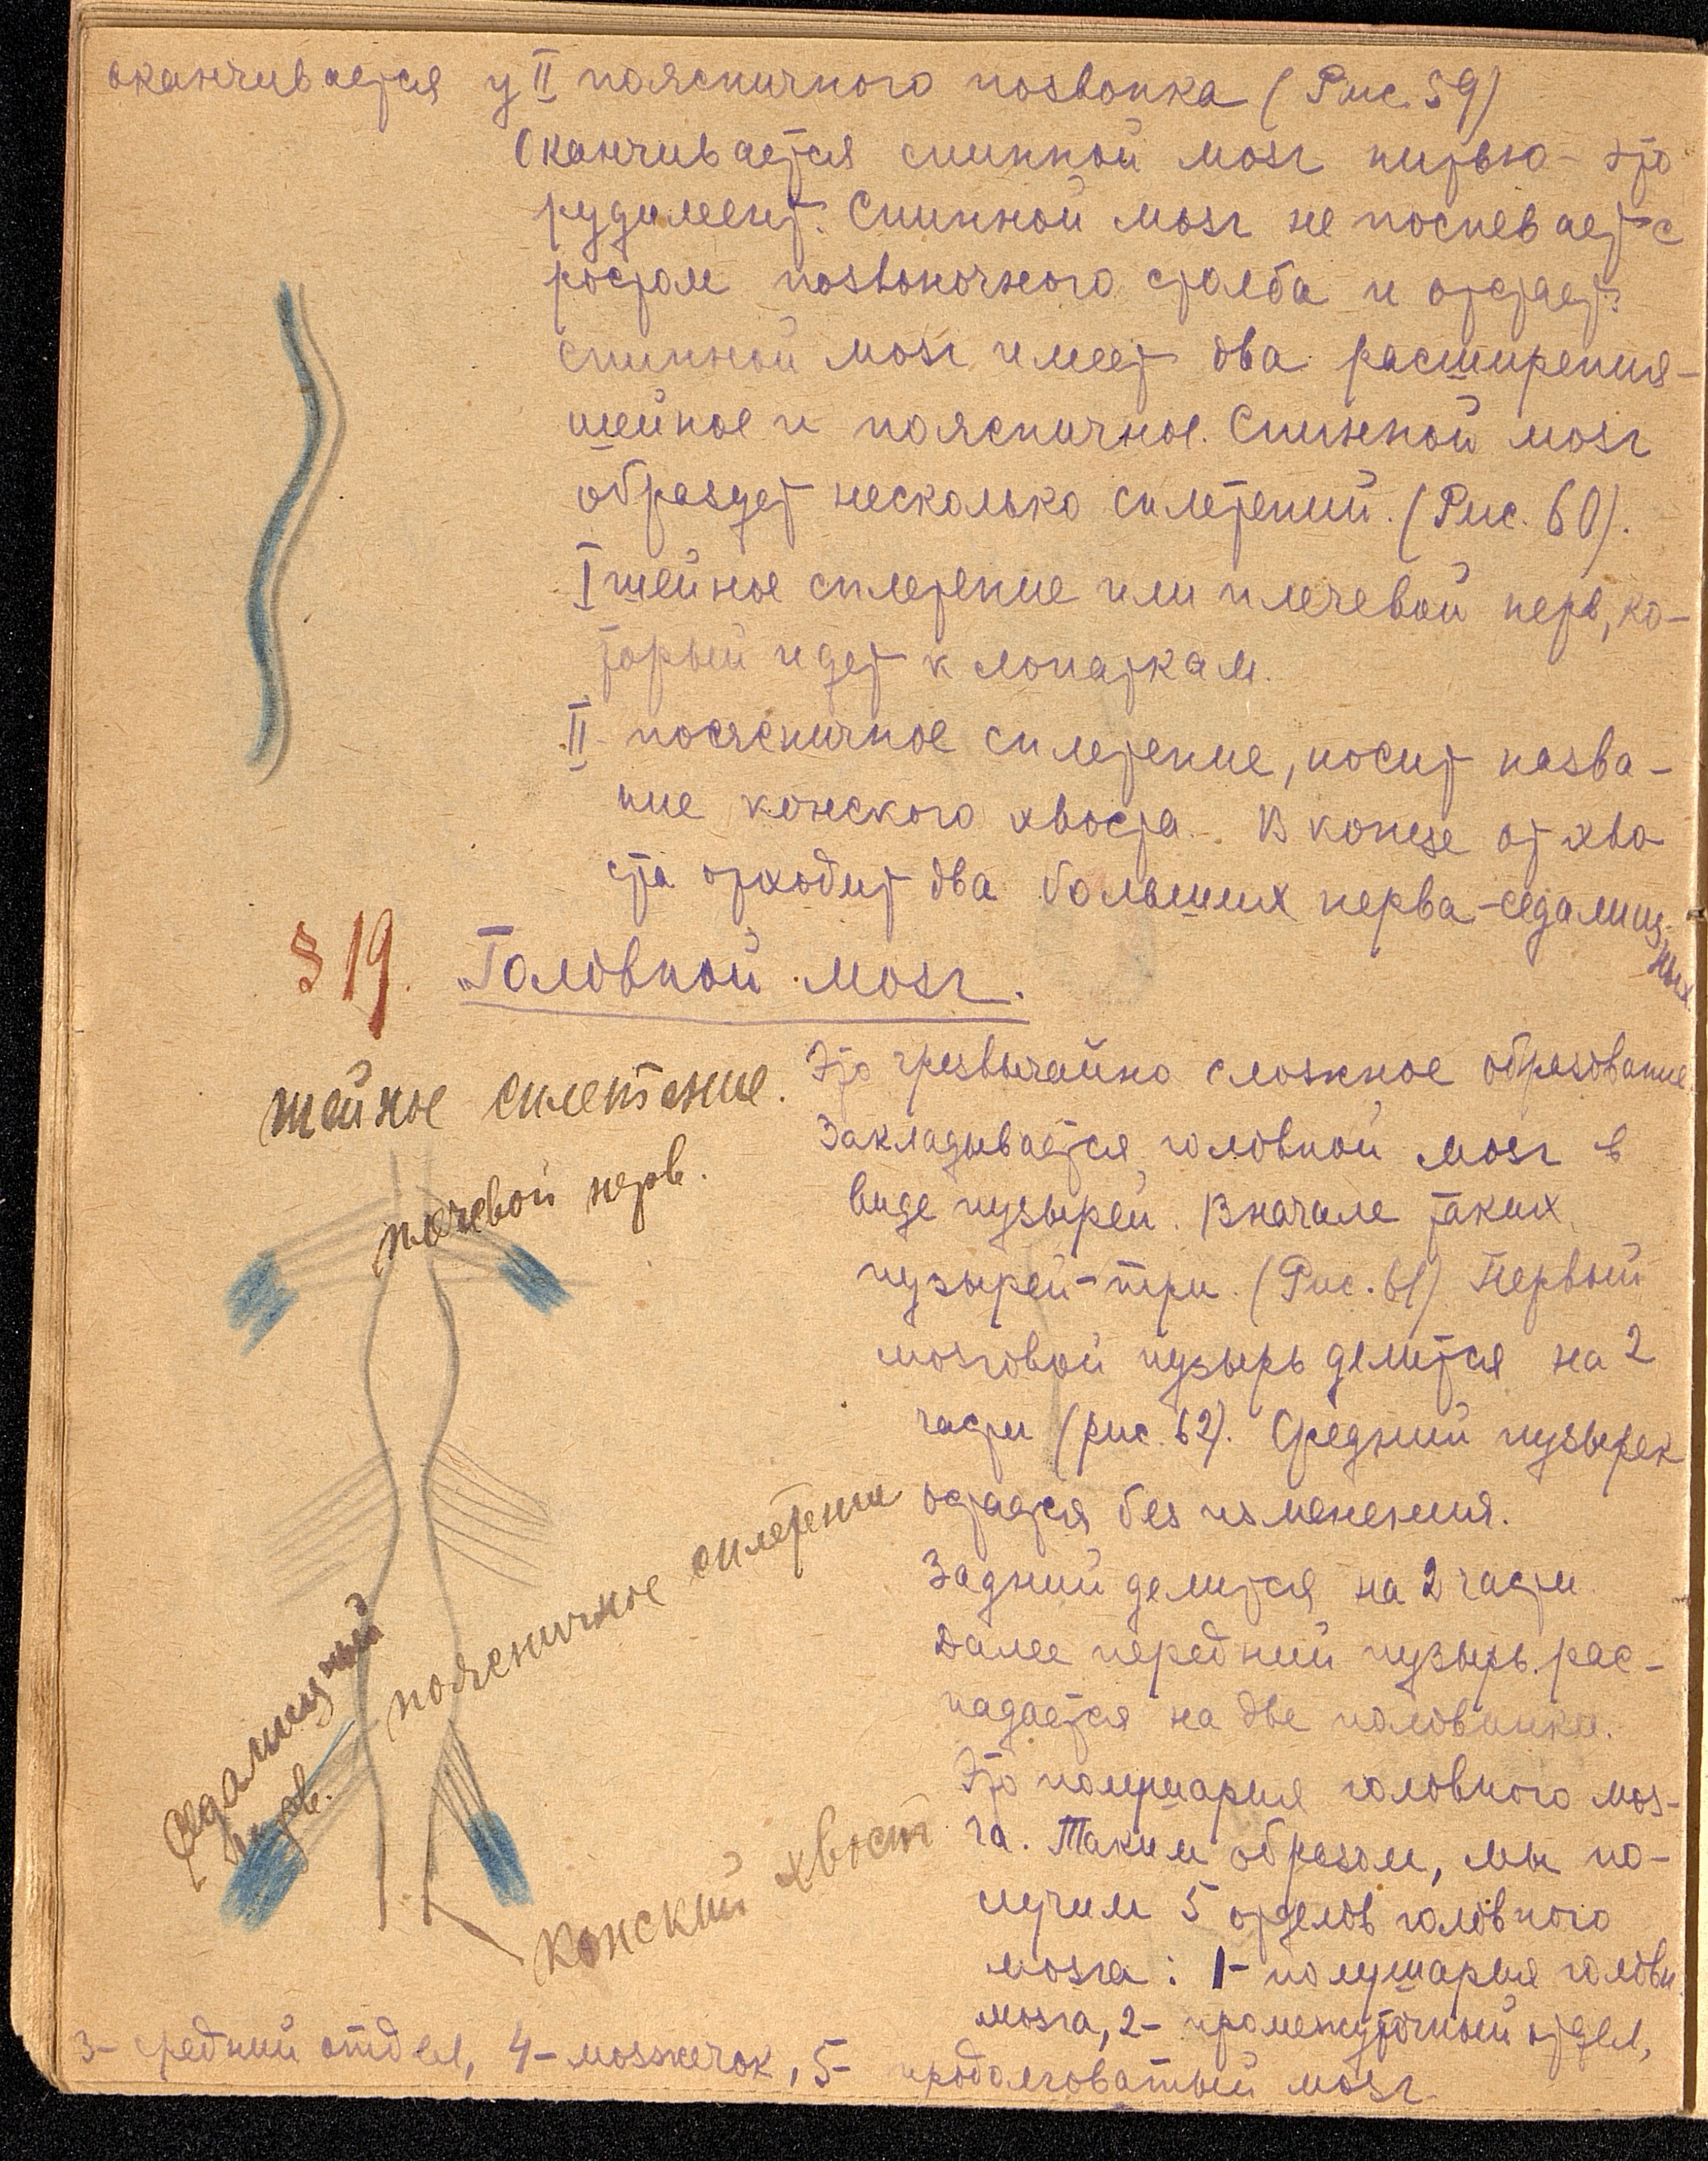 оканчивается у II поясничного позвонка (Рис. 59)
Оканчивается спинной мозг нитью - это
рудимент. Спинной мозг не поспевает с
ростом позвоночного столба и отстает.
Спинной мозг имеет два расширения -
шейное и поясничное. Спинной мозг
образует несколько сплетений. (Рис. 60).
I шейное сплетение или плечевой нерв, ко-
торый идет к лопаткам.
II - поясничное сплетение, носит назва-
ние конского хвоста. В конце от хво
ста отходит два больших нерва - седалищ-
ных.
§ 19. Головной мозг.
Это чрезвычайно сложное образование.
Закладывается головной мозг в
виде пузырей. Вначале таких
пузырей - три. (Рис. 61) Первый
мозговой пузырь делится на 2
части (рис. 62). Средний пузырек
остается без изменения.
Задний делится на 2 части.
Далее передний пузырь рас-
падается на две половинки.
Это полушария головного моз-
га. Таким образом, мы по-
лучим 5 отделов головного
мозга: 1- полушария головн.
мозга, 2- промежуточный отдел,
3- средний отдел, 4- мозжечок, 5- продолговатый мозг.
шейное сплетение.
плечевой нерв.
поясничное сплетени
седалищный
нерв.
конский хвост